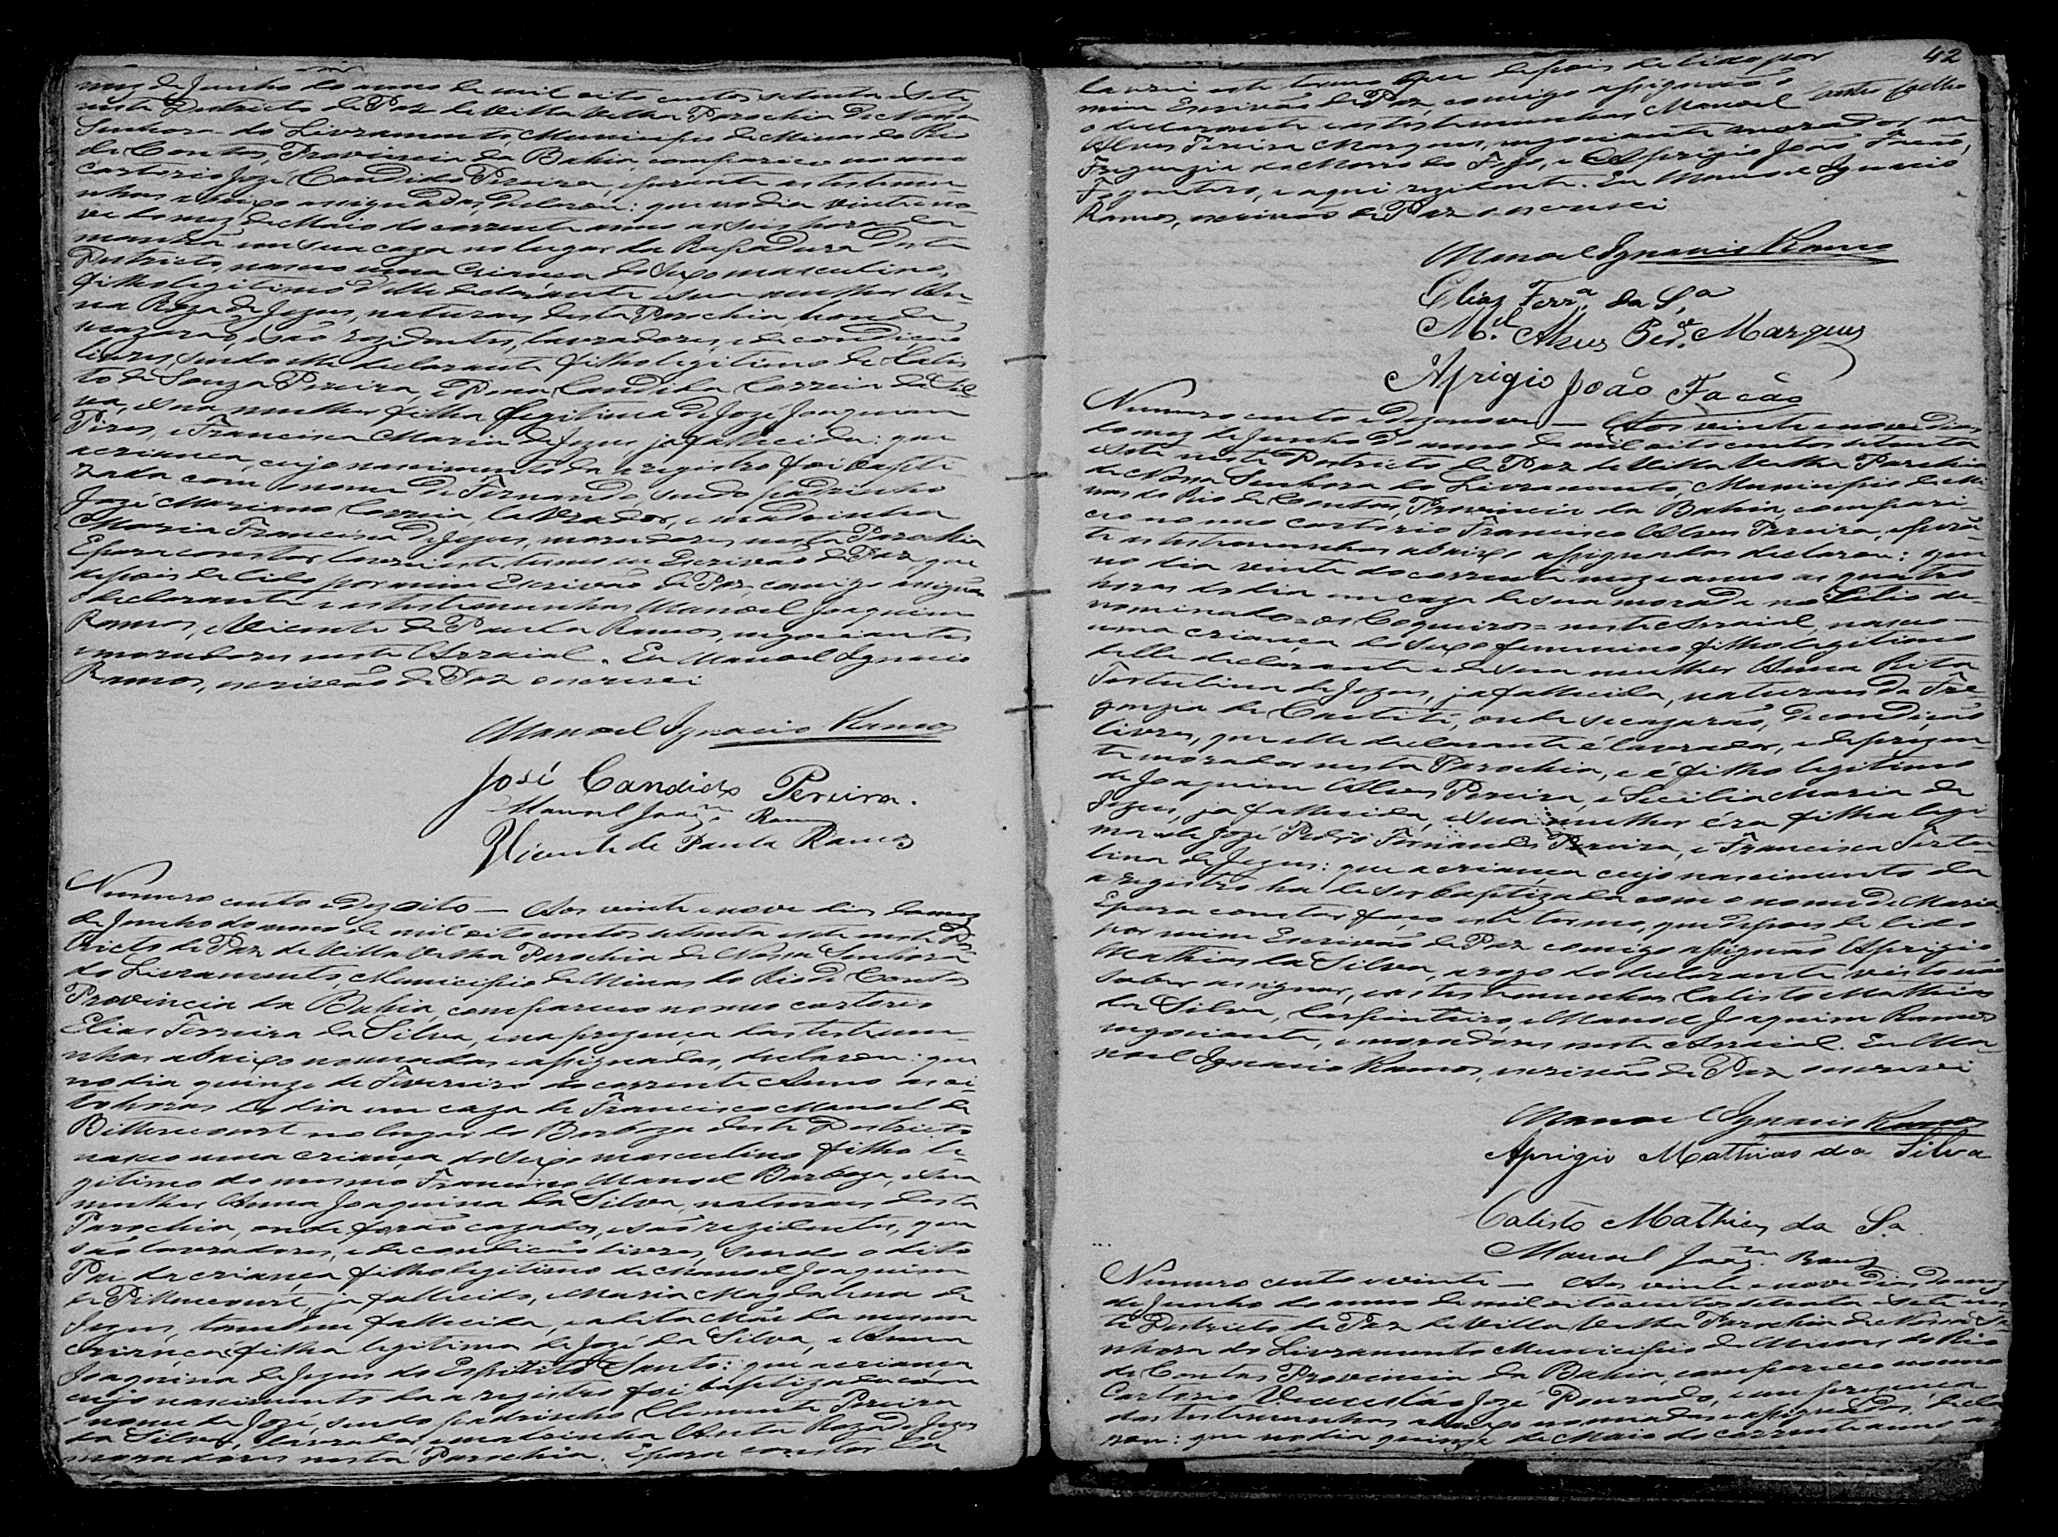 mez de Junho do anno de mil oito centos setenta e sete
neste Destricto de Paz de Villa Velha Parochia de Nossa
Senhora do Livramento, Municipio de Minas do Rio
de Contas, Provincia da Bahia, compareceo no meo
cartorio José Candido Pereira, e perante as testemu-
nhas abaixo assignadas, declarou: que no dia vinte no-
ve do mez de Maio do corrente anno as seis horas da
manhã em sua caza no lugar da Rapadura deste
Destricto, nasceo uma criança do sexo masculino,
filho legitimo d'elle declarante e sua mulher An-
na Roza de Jezus, naturaes desta Parochia, honde
se cazarão, e são rezidentes, lavradores, e de condição
livres, sendo elle declarante filho legitimo de Calis-
to de Souza Pereira, e Dona Candida Correia da Sil
va, e sua mulher filha legitima de Jozé Joaquim
Pires, e Francisca Maria de Jezus ja fallecida: que
a criança, cujo nascimento da a registro foi bapti
zada com o nome de Fernando, sendo padrinho
José Mariano Correia, lavrador, e madrinha
Maria Francisca de Jezus, moradores nesta Parochia
E para constar lavrei este termo eu Escrivão de Paz, que
depois de lido por mim Escrivão de Paz, comigo assignão
o declarante e as testemunhas Manoel Joaquim
Ramos, e Vicente de Paula Ramos, negociantes
e moradores neste Arraial. Eu Manoel Ignacio
Ramos, escrivão de Paz o escrevi
Manoel Ignacio Ramos
José Candido Pereira.
Manoel Joaqm Ramos
Vicente de Paula Ramos
Numero cento e dezoito — Aos vinte e nove dias do mez
de Junho do anno de mil oito centos setenta e sete neste Des
tricto de Paz de Villa Velha Parochia de Nossa Senhora
do Livramento, Municipio de Minas do Rio de Contas
Provincia da Bahia, compareceo no meo cartorio
Elias Ferreira da Silva, e na prezença das testemu-
nhas abaixo nomeadas e assignadas, declarou: que
no dia quinze de Fevereiro do corrente anno as oi-
to horas do dia em caza de Francisco Manoel de
Bittencourt no lugar do Barboza deste Destricto
nasceo uma criança do sexo masculino filho le-
gitimo do mesmo Francisco Manoel Barboza, e sua
mulher Anna Joaquina da Silva, naturaes desta
Parochia, onde forão cazados, e são rezidentes, que
são lavradores, e de condição livres, sendo o dito
Pae da criança filho legitimo de Manoel Joaquim
de Pittencourt, ja fallecido, e Maria Magdalena de
Jezus, tambem fallecida, e a dita Mãe da mesma
criança filha legitima de Jozé da Silva, e Anna
Joaquina de Jezus do Espirito Santo: que a criança
cujo nascimento da a registro foi baptizada com
o nome de José, sendo padrinho Clemente Pereira
da Silva, lavrador, e madrinha Anta Roza de Jezus
moradores nesta Parochia. E para constar la
42
lavrei este termo que depois de lido por
mim Escrivão de Paz, comigo assignarão
o declarante e as testemunhas Manoel
Alves Pereira Marques, negociante morador na
Freguezia do Morro do Fogo, e Aprigio João Facão,
Fogueteiro, e aqui rezidente. Eu Manoel Ignacio
Ramos, escrivão de Paz o escrevi
Manoel Ignacio Ramos
Elias Ferra da Sa
Mel Alves Perª Marques
Aprigio João Facão
Numero cento e dezenove — Aos vinte e nove dias
do mez de Junho do anno de mil oito centos setenta
e sete neste Destricto de Paz de Villa Velha Parochia
de Nossa Senhora do Livramento, Municipio de Mi-
nas do Rio de Contas, Provincia da Bahia, compare-
ceo no meo cartorio Francisco Alves Pereira, e peran-
te as testemunhas abaixo assignadas declarou: que
no dia vinte do corrente mez e anno as quatro
horas do dia em caza de sua morada no Citio de-
nominado = os Coqueiros = neste Arraial, nasceo
uma criança do sexo feminino filha legitima
delle declarante e de sua mulher Anna Rita
Fortulina de Jezus, ja fallecida, naturaes da Fre-
guezia de Caetité, onde se cazarão, de condição
livres, que elle declarante é lavrador, e de prezen-
te morador nesta Parochia, e é filho legitimo
de Joaquim Alves Pereira, e Cecilia Maria de
Jezus, ja fallecida, e sua mulher éra filha legi
ma de Jozé Pedro Fernandes Pereira, e Francisca Fortu-
lina de Jezus: que a criança cujo nascimento da
a registro ha de ser baptizada com o nome de Maria
E para constar faço este termo, que depois de lido
por mim Escrivão de Paz comigo assignão Aprigio
Mathias da Silva, a rogo do declarante, visto não
saber assignar, e as testemunhas Calisto Mathias
da Silva, Carpinteiro, e Manoel Joaquim Ramos
negociante, e moradores neste Arraial. Eu Ma-
noel Ignacio Ramos, escrivão de Paz escrevi
Manoel Ignacio Ramos
Aprigio Mathias da Silva
Calisto Mathias da Sa
Manoel Joaqm Ramos
Numero cento e vinte — Aos vinte e nove dias do mez
de Junho do anno de mil oito centos setenta e sete nes-
te Destricto de Paz de Villa Velha Parochia de Nossa Se-
nhora do Livramento Municipio de Minas do Rio
de Contas Provincia da Bahia, compareceo no meo
Cartorio Venceslão José Dourado, e em prezença
das testemunhas abaixo nomeadas e assignadas, decla
rou: que no dia quinze de Maio do corrente anno as